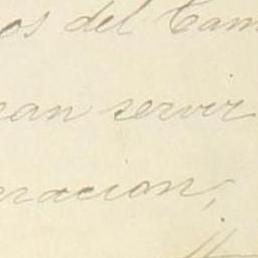 os del Cam
ean servir
eracion,